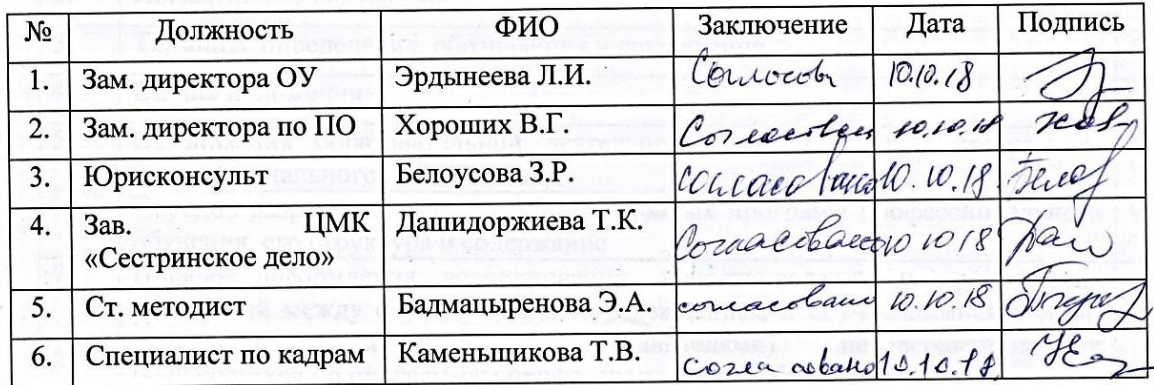 № Должность ФИО Заключение Дата Подпись
1. Зам. директора ОУ Эрдынеева Л.И. 10.10.18
2. Зам. директора по ПО Хороших В.Г. 10.10.18
3. Юрисконсульт Белоусова З.Р. согласовано 10.10.18
4. Зав. ЦМК Дашидоржиева Т.К. Согласовано 10 10 18
«Сестринское дело»
5. Ст. методист Бадмацыренова Э.А. согласовано 10.10.18
6. Специалист по кадрам Каменьщикова Т.В. согласовано 10.10.18